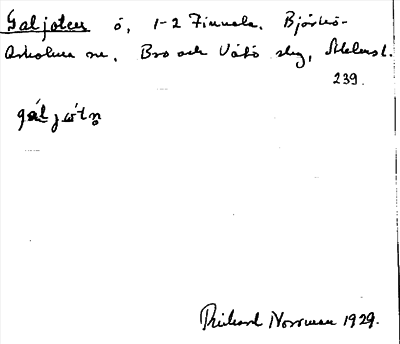 Galjoten ö, 1-2 Finnala. Björkö-
Arholma sn, Bro och Vätö skg, Sthlms l.
239.
gáljɷ̀tn̥
Rickard Norrman 1929.